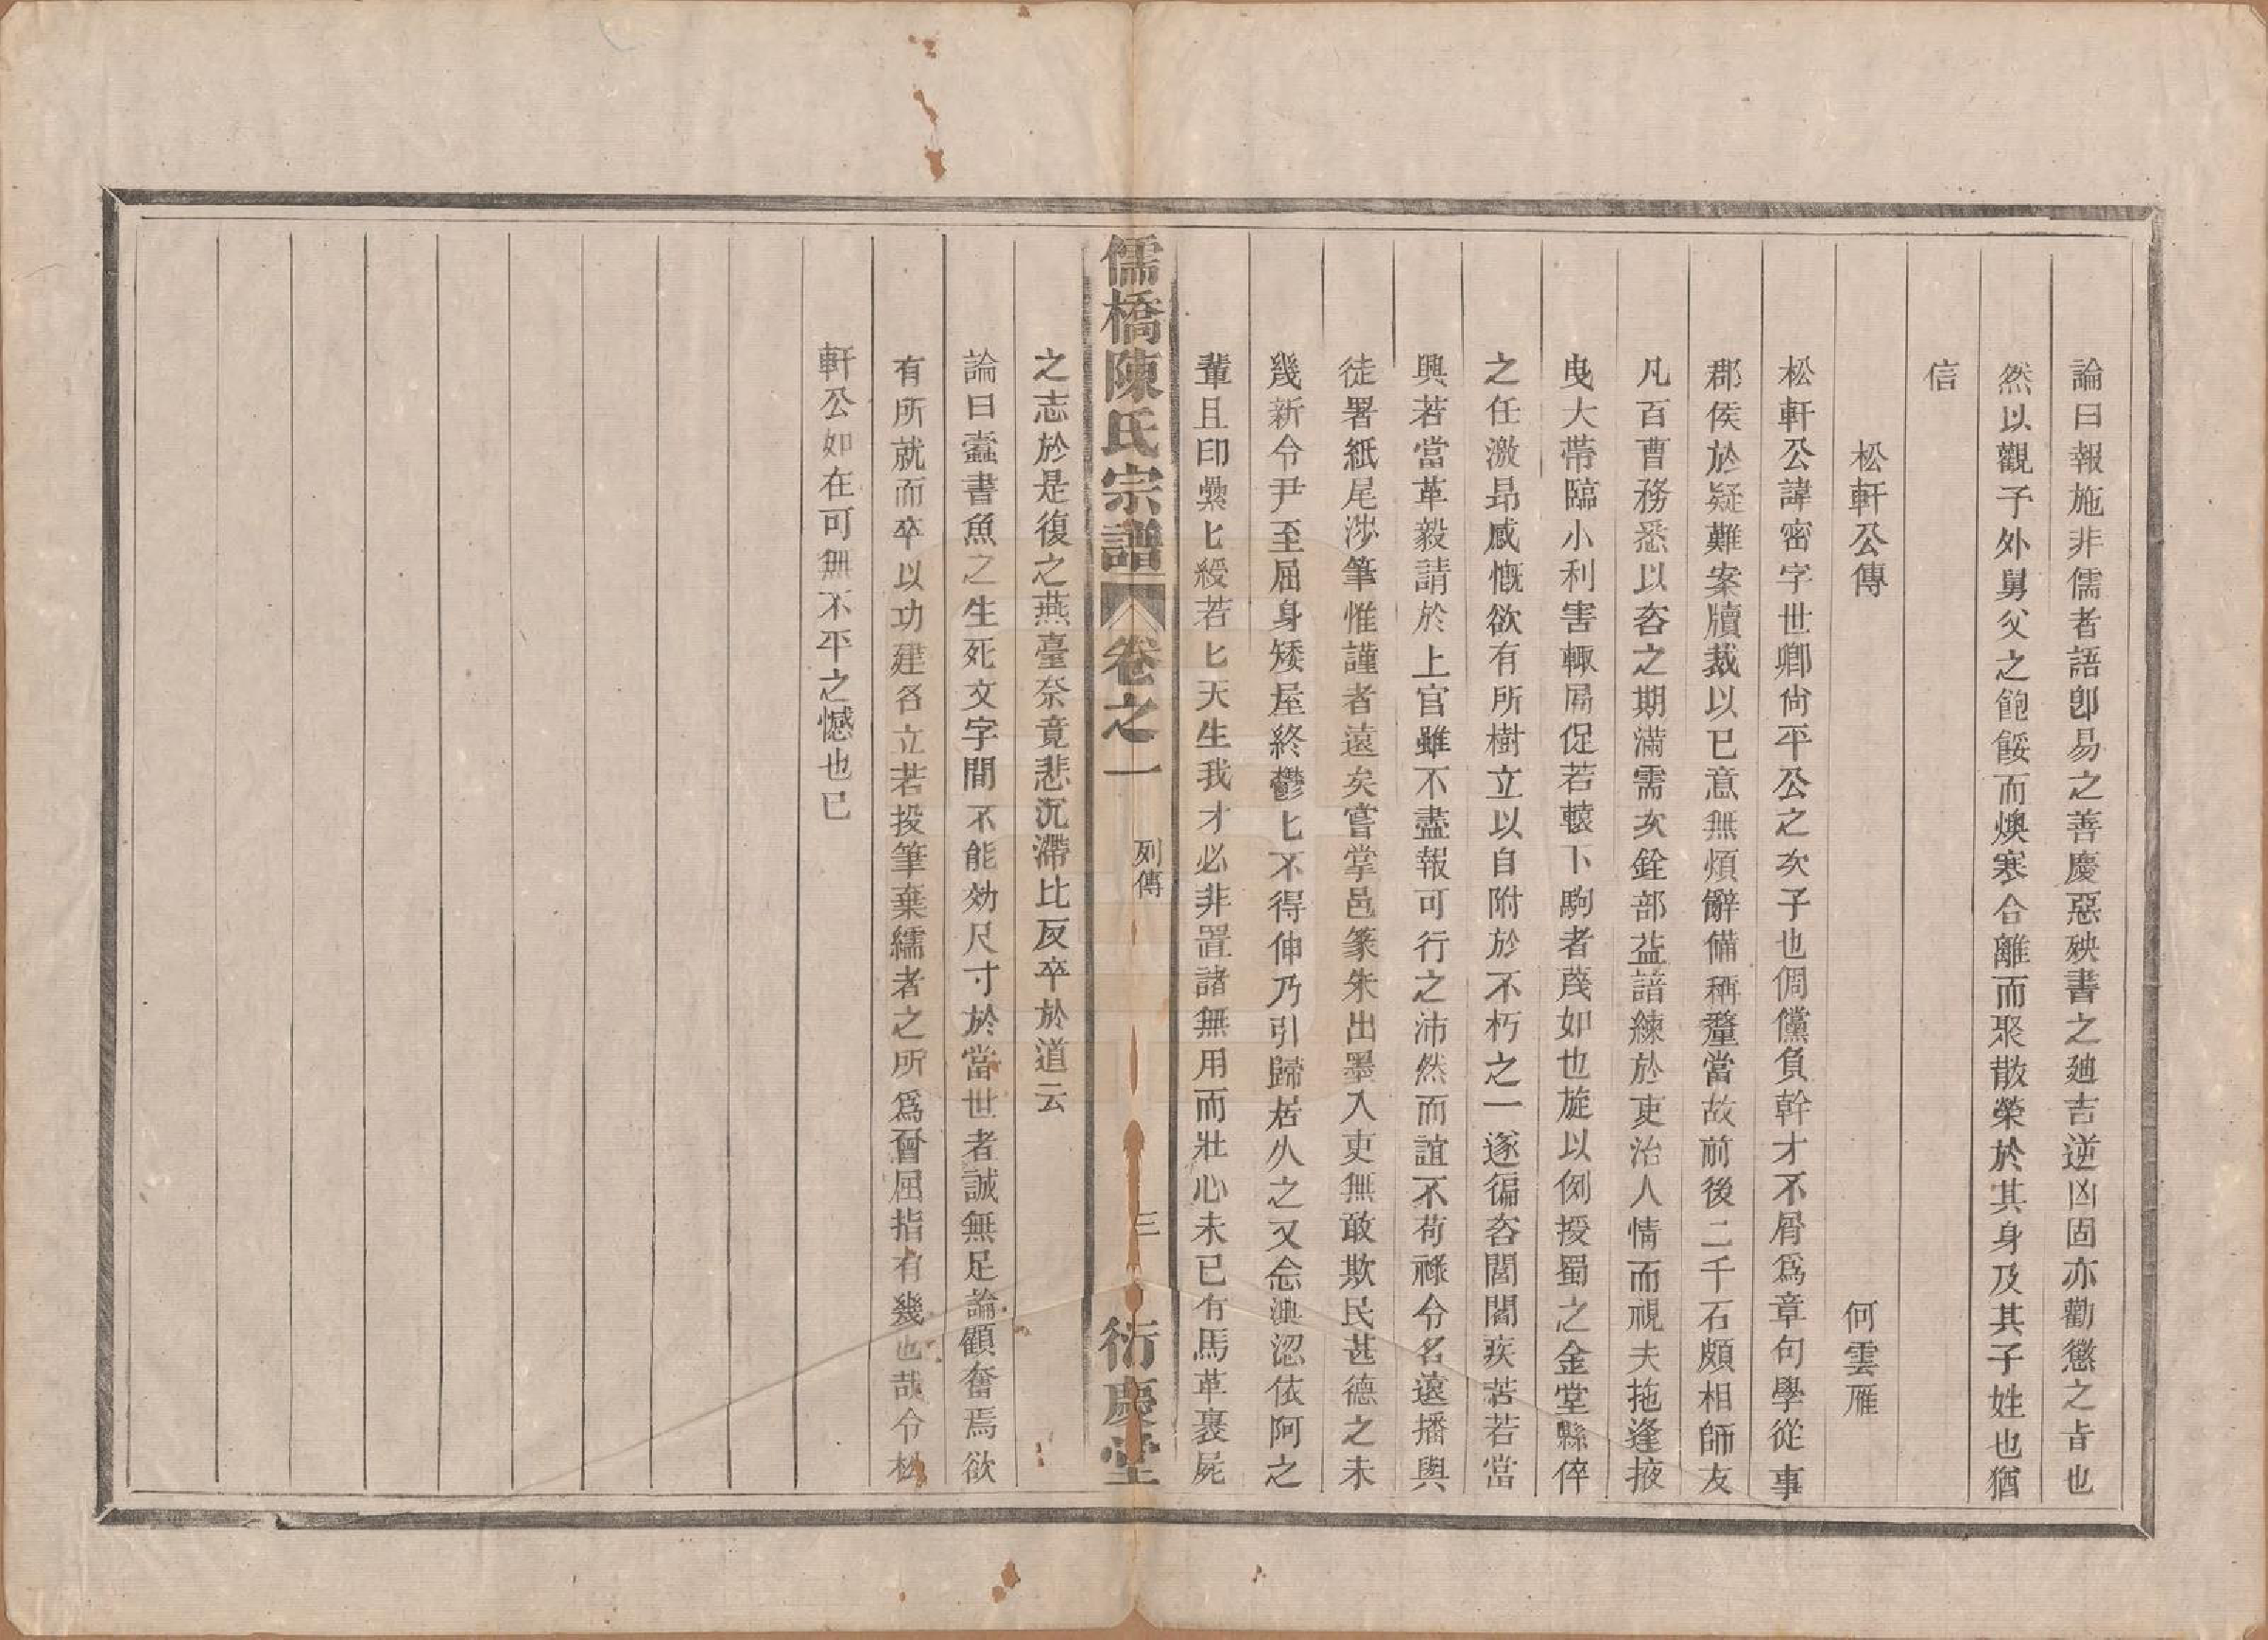 論曰報施非儒者語卽易之善慶惡殃書之廸吉逆凶固亦勸懲之旨也
然以觀予外舅父之飽餒而燠寒合離而聚散榮於其身及其子姓也猶
信
松軒公傳
何雲雁
松軒公諱密字世卿尙平公之次子也倜儻負幹才不屑爲章句學從事
郡侯於疑難案牘裁以已意無煩辭備稱釐當故前後二千石頗相師友
凡百曹務悉以咨之期滿需次銓部益諳練於吏治人情而視夫拖逢掖
曳大帶臨小利害輙局促若轅下駒者蔑如也旋以例授蜀之金堂縣倅
之任激昻感慨欲有所樹立以自附於不朽之一遂徧咨閭閻疾苦若當
興若當革毅請於上官雖不盡報可行之沛然而誼不苟祿令名遠播與
徒署紙尾涉筆惟謹者遠矣嘗掌邑篆朱出墨入吏無敢欺民甚德之未
幾新令尹至屈身矮屋終鬱匕不得伸乃引歸居久之又念淟涊依阿之
輩且印纍匕綬若匕天生我才必非置諸無用而壯心未已有馬革裹屍
儒橋陳氏宗譜
卷之一
列傳
三
衍慶堂
之志於是復之燕臺奈竟悲沉滯比反卒於道云
論曰蠹書魚之生死文字間不能効尺寸於當世者誠無足論顧奮焉欲
有所就而卒以功建名立若投筆棄繻者之所爲曾屈指有幾也哉令松
軒公如在可無不平之憾也已